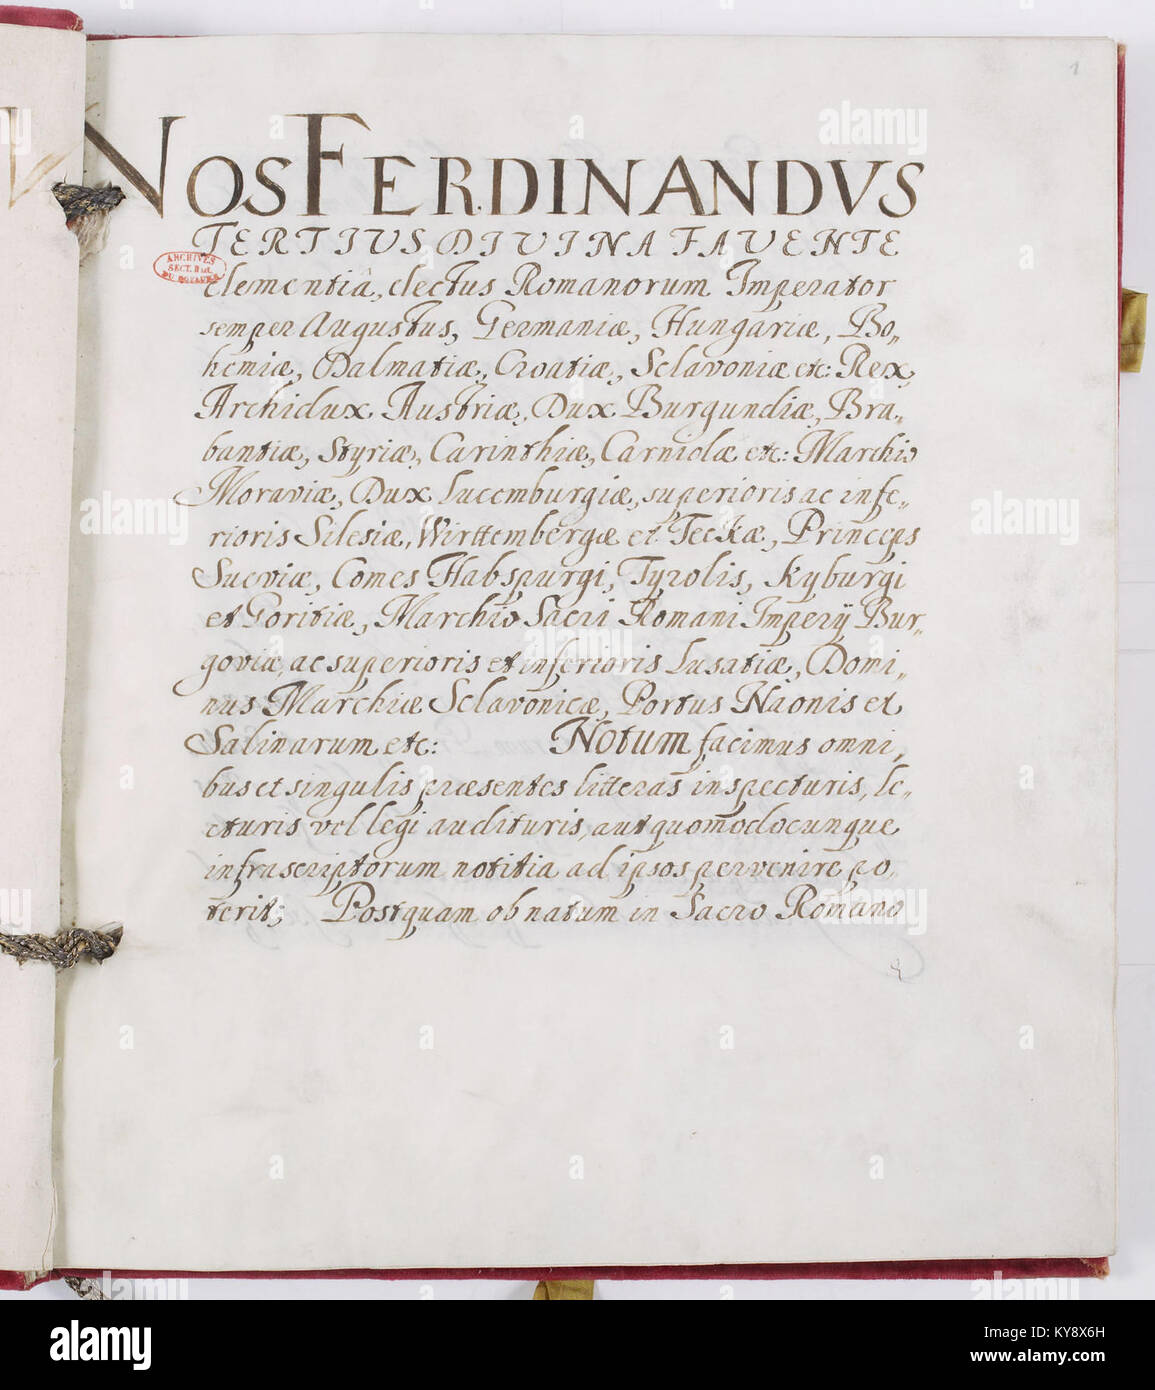 1
NOS FERDINANDVS
TERTIUS DIVINA FAVENTE
Clementiâ, electus Romanorum Imperator
semper Augustus, Germaniæ, Hungariæ, Bo„
hemiæ, Dalmatiæ, Croatiæ, Sclavoniæ etc: Rex,
Archidux Austriæ, Dux Burgundiæ, Bra„
bantiæ, Styriæ, Carinthiæ, Carniolæ etc: Marchio
Moraviæ, Dux Lucemburgiæ, superioris ac infe„
rioris Silesiæ, Wirttembergæ et Teckæ, Princeps
Sueviæ, Comes Habspurgi, Tyrolis, Kyburgi
et Goritiæ, Marchio Sacri Romani Imperij Bur„
goviæ, ac superioris et inferioris Lusatiæ, Domi„
nus Marchiæ Sclavonicæ, Portus Naonis et
Salinarum etc: Notum facimus omni„
bus et singulis præsentes litteras inspecturis, le„
cturis vel legi audituris, aut quomodocunque
infrascriptorum notitia ad ipsos pervenire po„
terit; Postquam ob natum in Sacro Romano
ARCHIVES
SECT. HIST.
DU ROYAUME
alamy
Image ID: KY8X6H
www.alamy.com